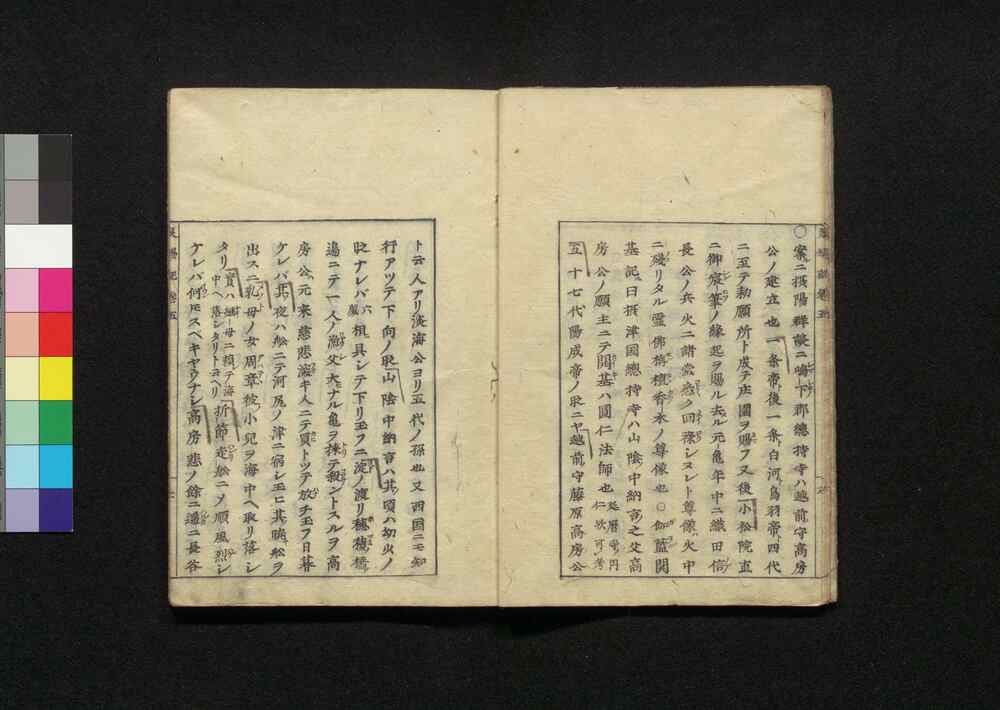 ○案ニ摂陽群談ニ嶋下郡總持寺ハ越前守高房
公ノ建立也一条帝後一条白河鳥羽帝四代
ニ至テ勅願所ト成テ庄園ヲ賜フ又後小松院直
ニ御宸筆ノ縁起ヲ賜ル去ル元亀年中ニ織田信
長公ノ兵火ニ諸堂悉ク回祿シヌレト尊像火中
ニ殘リタル霊佛栴檀香木ノ尊像也○伽藍開
基記曰摂津国總持寺ハ山陰中納言之父高
房公ノ願主ニテ開基ハ圓仁法師也
五十七代陽成帝ノ比ニヤ越前守藤原高房公
ト云人アリ淡海公ヨリ五代ノ孫也又西国ニモ知
行アツテ下向ノ比山陰中納言ハ其頃ハ幼火ノ
比ナレバ相具シテ下リ玉フニ淀ノ渡リ穂積橋
邉ニテ一人ノ漁父大ナル亀ヲ捕テ殺ントスルヲ高
房公元来慈悲深キ人ニテ買トツテ放チ玉フ日暮
ケレバ其夜ハ舩ニテ河尻ノ津ニ宿シ玉ヒ其暁舩ヲ
出スニ乳母ノ女周章彼小兒ヲ海中ヘ取リ落シ
タリ實ハ継母ニ頼テ海中ヘ落シタリト云ヘリ折節走舩ニソ順風烈シ
ケレバ何トモスベキヤウナシ高房悲ノ餘ニ遥ニ長谷